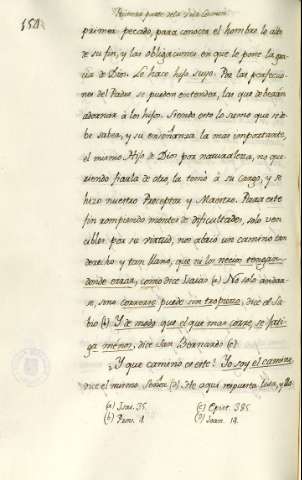 154
Primera parte de la Vida Comun
primer pecado, para conocer el hombre lo alto
de su fin, y las obligaciones en que le pone la gra-
cia de Dios. Le hace hijo suyo. Por las perfeccio-
nes del Padre se pueden entender, las que deberán
adornar á los hijos. Siendo esto lo sumo que se de-
be saber, y su enseñanza la mas importante,
el mismo Hijo de Dios por naturaleza, no que-
riendo fiarla de otro, la tomó à su cargo, y se
hizo nuestro Preceptor y Maestro. Para este
fin rompiendo montes de dificultades, solo ven-
cibles por su virtud, nos abrió un camino tan
derecho y tan llano, que ni los necios tengan
donde errar, como dice Isaias (a) No solo andara
n, sino correrse puede sin tropiezo, dice el Sa-
bio (b) Y de modo que el que mas corre, se fati-
ga menos, dice San Bernardo (c)
¿Y que camino es este? Yo soy el camino
dice el mismo Señor (d) He aqui respuesta
(a) Isai. 35.
(b) Prov. 4.
(c) Epist. 385.
(d) Joan. 14.